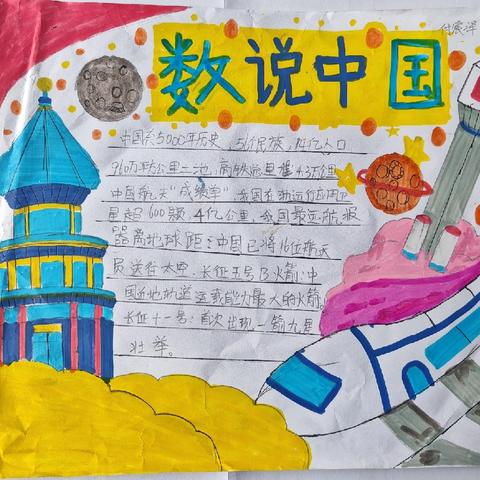 付宸泽
数说中国
中国有5000年历史，56个民族，14亿人口
960万平方公里土地，高铁总里程4.3万公里
中国航天"成绩单"我国在轨运行应用卫
星超600颗，4亿公里，我国最远航天探测
器离地球距：中国已将16位航天
员送往太空，长征五号B火箭：中
国近地轨道运载能力最大的火箭
长征十一号：首次出现一箭九星
壮举。